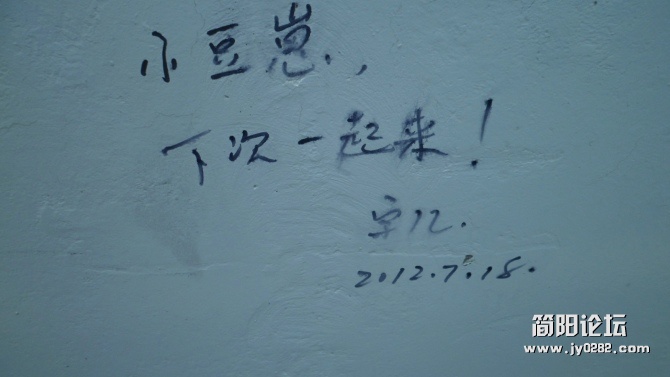 小豆崽.,
下次一起来!
字儿.
2012.7.18.
简阳论坛
www.jy0282.com